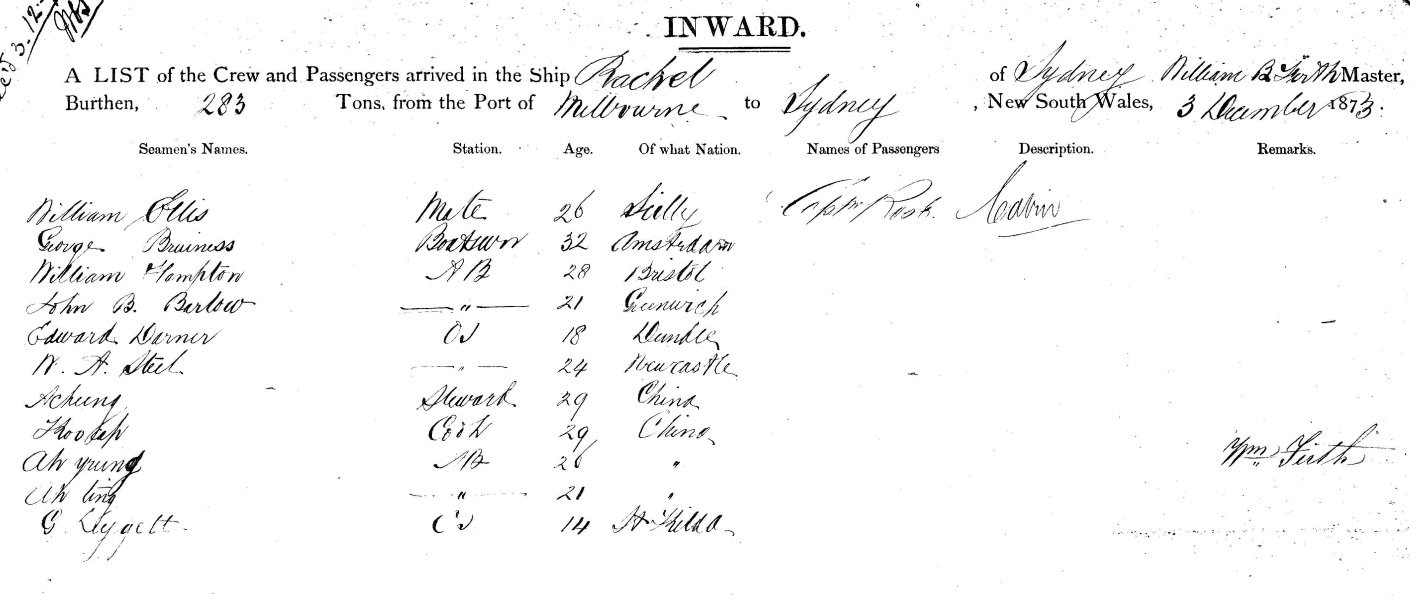 3.12.
INWARD.
A LIST of the Crew and Passengers arrived in the Ship Rachel of Sydney William B Firth Master,
Burthen, 283 Tons, from the Port of Melbourne to Sydney, New South Wales, 3 December 1873.
Seamen's Names. Station. Age. Of what Nation. Names of Passengers Description. Remarks.
William Ellis Mate 26 Scilly Captn Cabin
George Bruiness Boatswn 32 Amsterdam
William Hampton AB 28 Bristol
John B. Barlow —"— 21 Greenwich
Edward Darner OS 18 Dundee
W. A. Steel —"— 24 Newcastle
Acheung Steward 29 China
Cook 29 China
Ah yung AB 26 " Wm Firth
Ah ting —"— 21 "
G. Lyggett OS 14 St Kilda